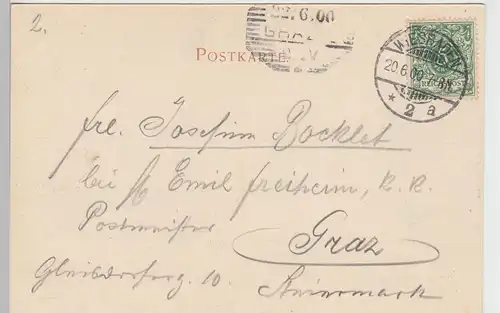 2.
22.6.00
GRAZ
POSTKARTE
WIESBADEN
20.6.00.7-8N
* 2 a
frl. Josefine Bocklet
bei H Emil Freiheim, k. k.
Postmeister
Graz
Gleisdorferg. 10. Steiermark